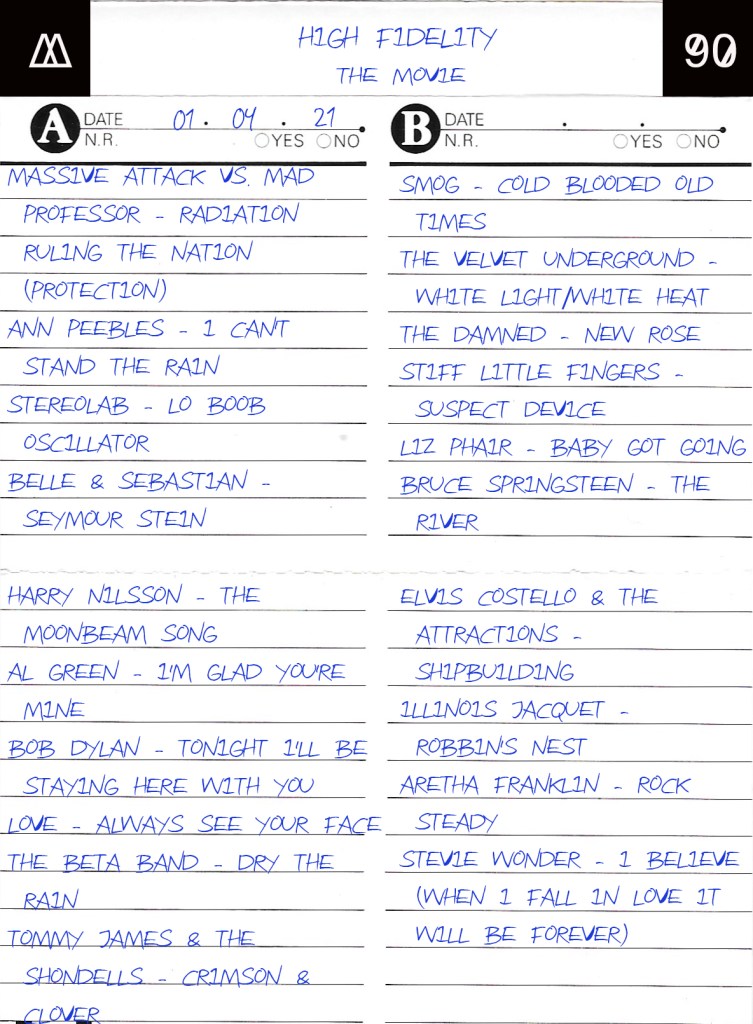 HIGH FIDELITY
THE MOVIE
90
A DATE 01 . 04 . 21
N.R. YES NO
MASSIVE ATTACK VS. MAD
PROFESSOR - RADIATION
RULING THE NATION
(PROTECTION)
ANN PEEBLES - I CAN'T
STAND THE RAIN
STEREOLAB - LO BOOB
OSCILLATOR
BELLE & SEBASTIAN -
SEYMOUR STEIN
HARRY NILSSON - THE
MOONBEAM SONG
AL GREEN - I'M GLAD YOU'RE
MINE
BOB DYLAN - TONIGHT I'LL BE
STAYING HERE WITH YOU
LOVE - ALWAYS SEE YOUR FACE
THE BETA BAND - DRY THE
RAIN
TOMMY JAMES & THE
SHONDELLS - CRIMSON &
CLOVER
B DATE . .
N.R. YES NO
SMOG - COLD BLOODED OLD
TIMES
THE VELVET UNDERGROUND -
WHITE LIGHT/WHITE HEAT
THE DAMNED - NEW ROSE
STIFF LITTLE FINGERS -
SUSPECT DEVICE
LIZ PHAIR - BABY GOT GOING
BRUCE SPRINGSTEEN - THE
RIVER
ELVIS COSTELLO & THE
ATTRACTIONS -
SHIPBUILDING
ILLINOIS JACQUET -
ROBBIN'S NEST
ARETHA FRANKLIN - ROCK
STEADY
STEVIE WONDER - I BELIEVE
(WHEN I FALL IN LOVE IT
WILL BE FOREVER)